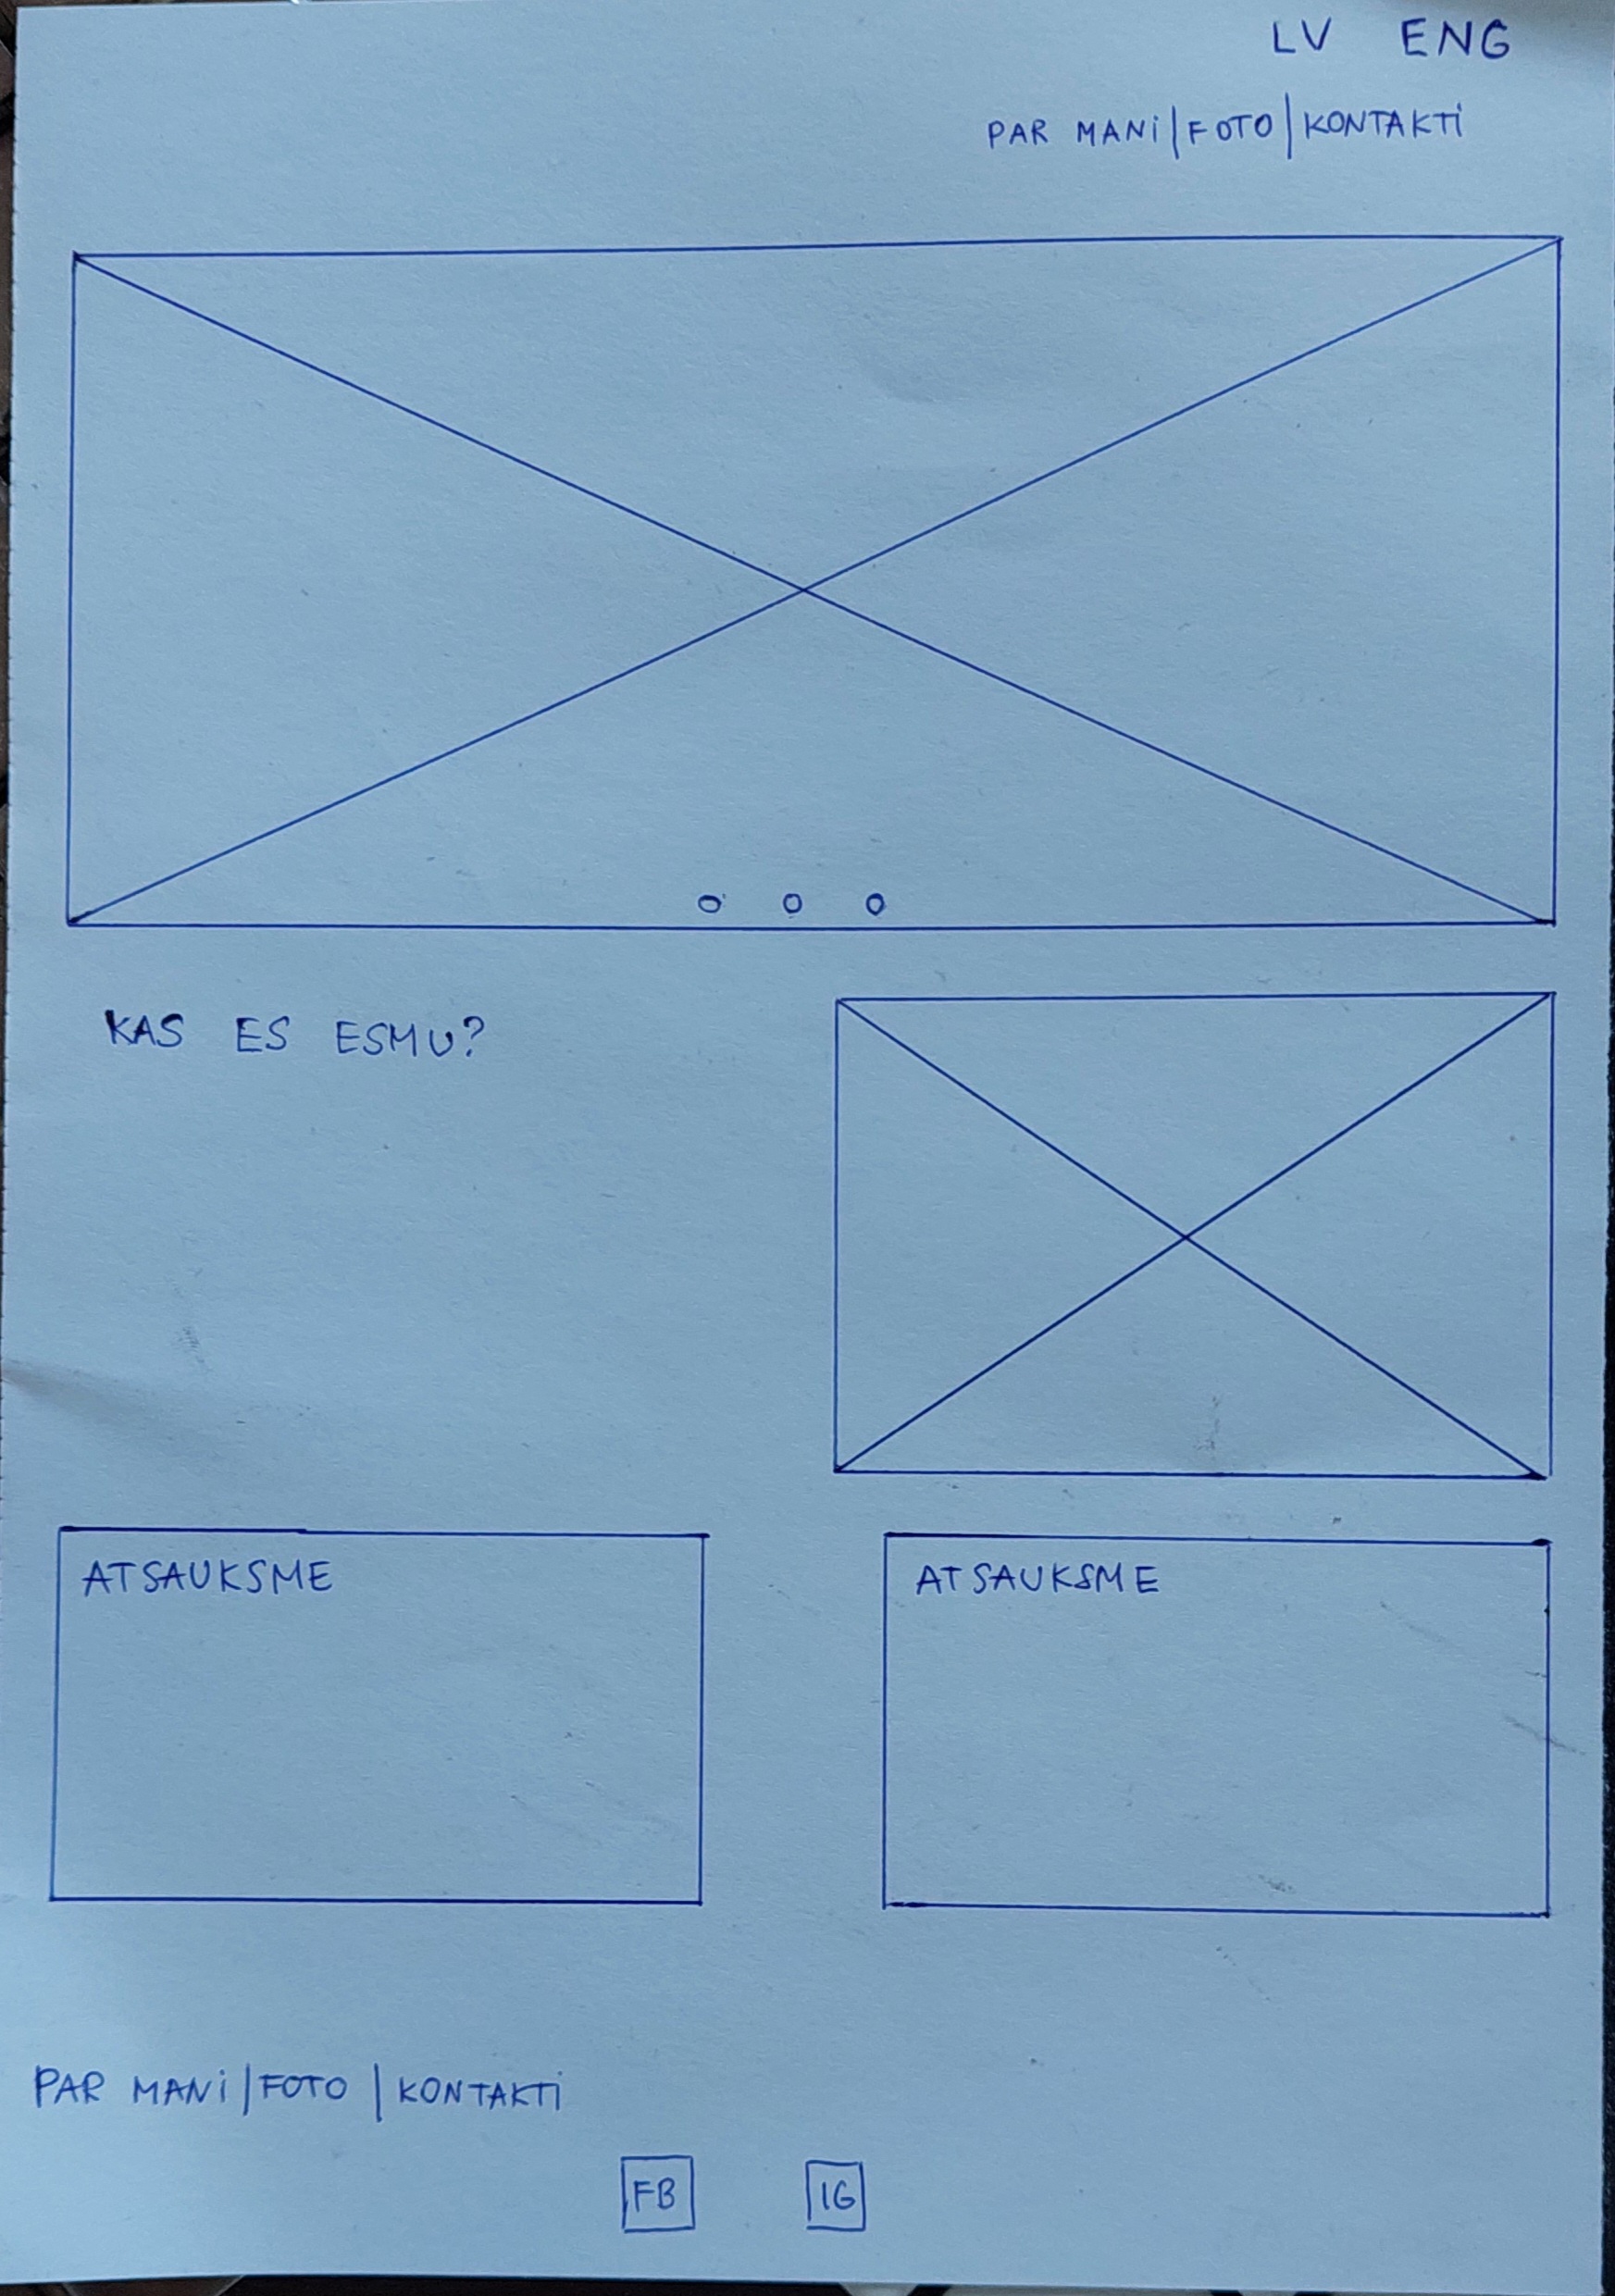 LV ENG
PAR MANI|FOTO|KONTAKTI
KAS ES ESMU?
ATSAUKSME
ATSAUKSME
PAR MANI|FOTO|KONTAKTI
FB IG